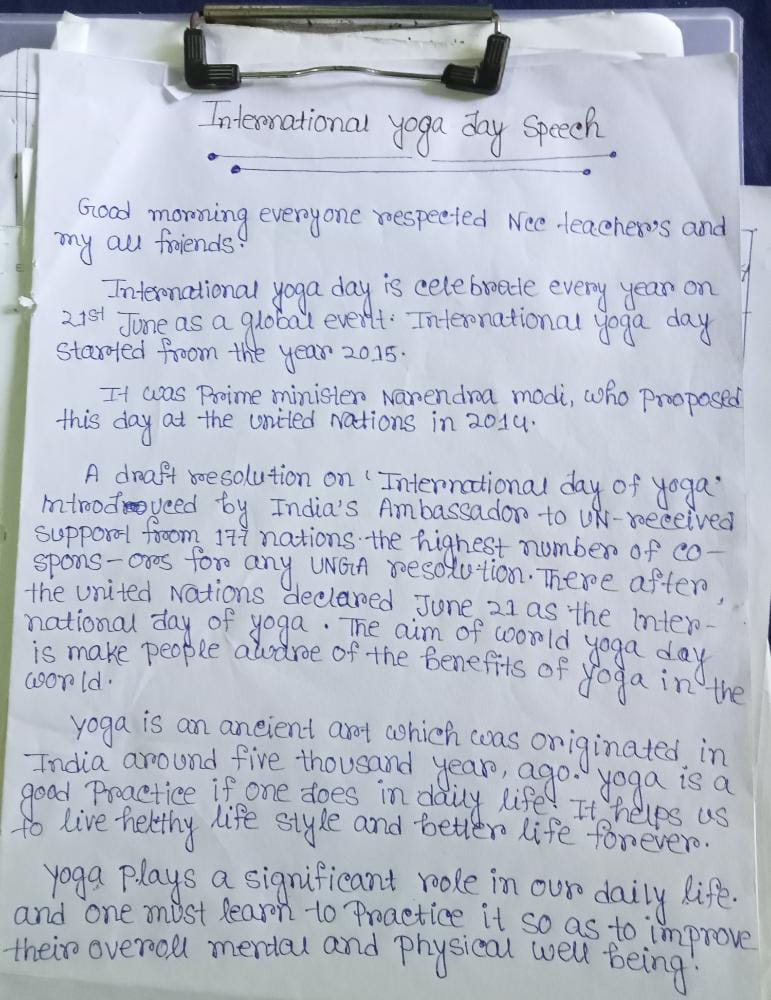 International yoga day Speech
Good morning everyone respected Ncc teacher's and
my all friends.
International yoga day is celebrate every year on
21st June as a global event. International yoga day
started from the year 2015.
It was Prime minister Narendra modi, who proposed
this day at the united Nations in 2014.
A draft resolution on 'International day of yoga'
introduced by India's Ambassador to UN-received
support from 177 nations. the highest number of co-
spons-ors for any UNGA resolution. There after,
the united Nations declared June 21 as the Inter-
national day of yoga. The aim of world yoga day
is make people aware of the benefits of yoga in the
world.
yoga is an ancient art which was originated in
India around five thousand year, ago. yoga is a
good Practice if one does in daily life. It helps us
to live helthy life style and better life forever.
yoga plays a significant role in our daily life.
and one must learn to Practice it so as to improve
their overall mental and physical well being.